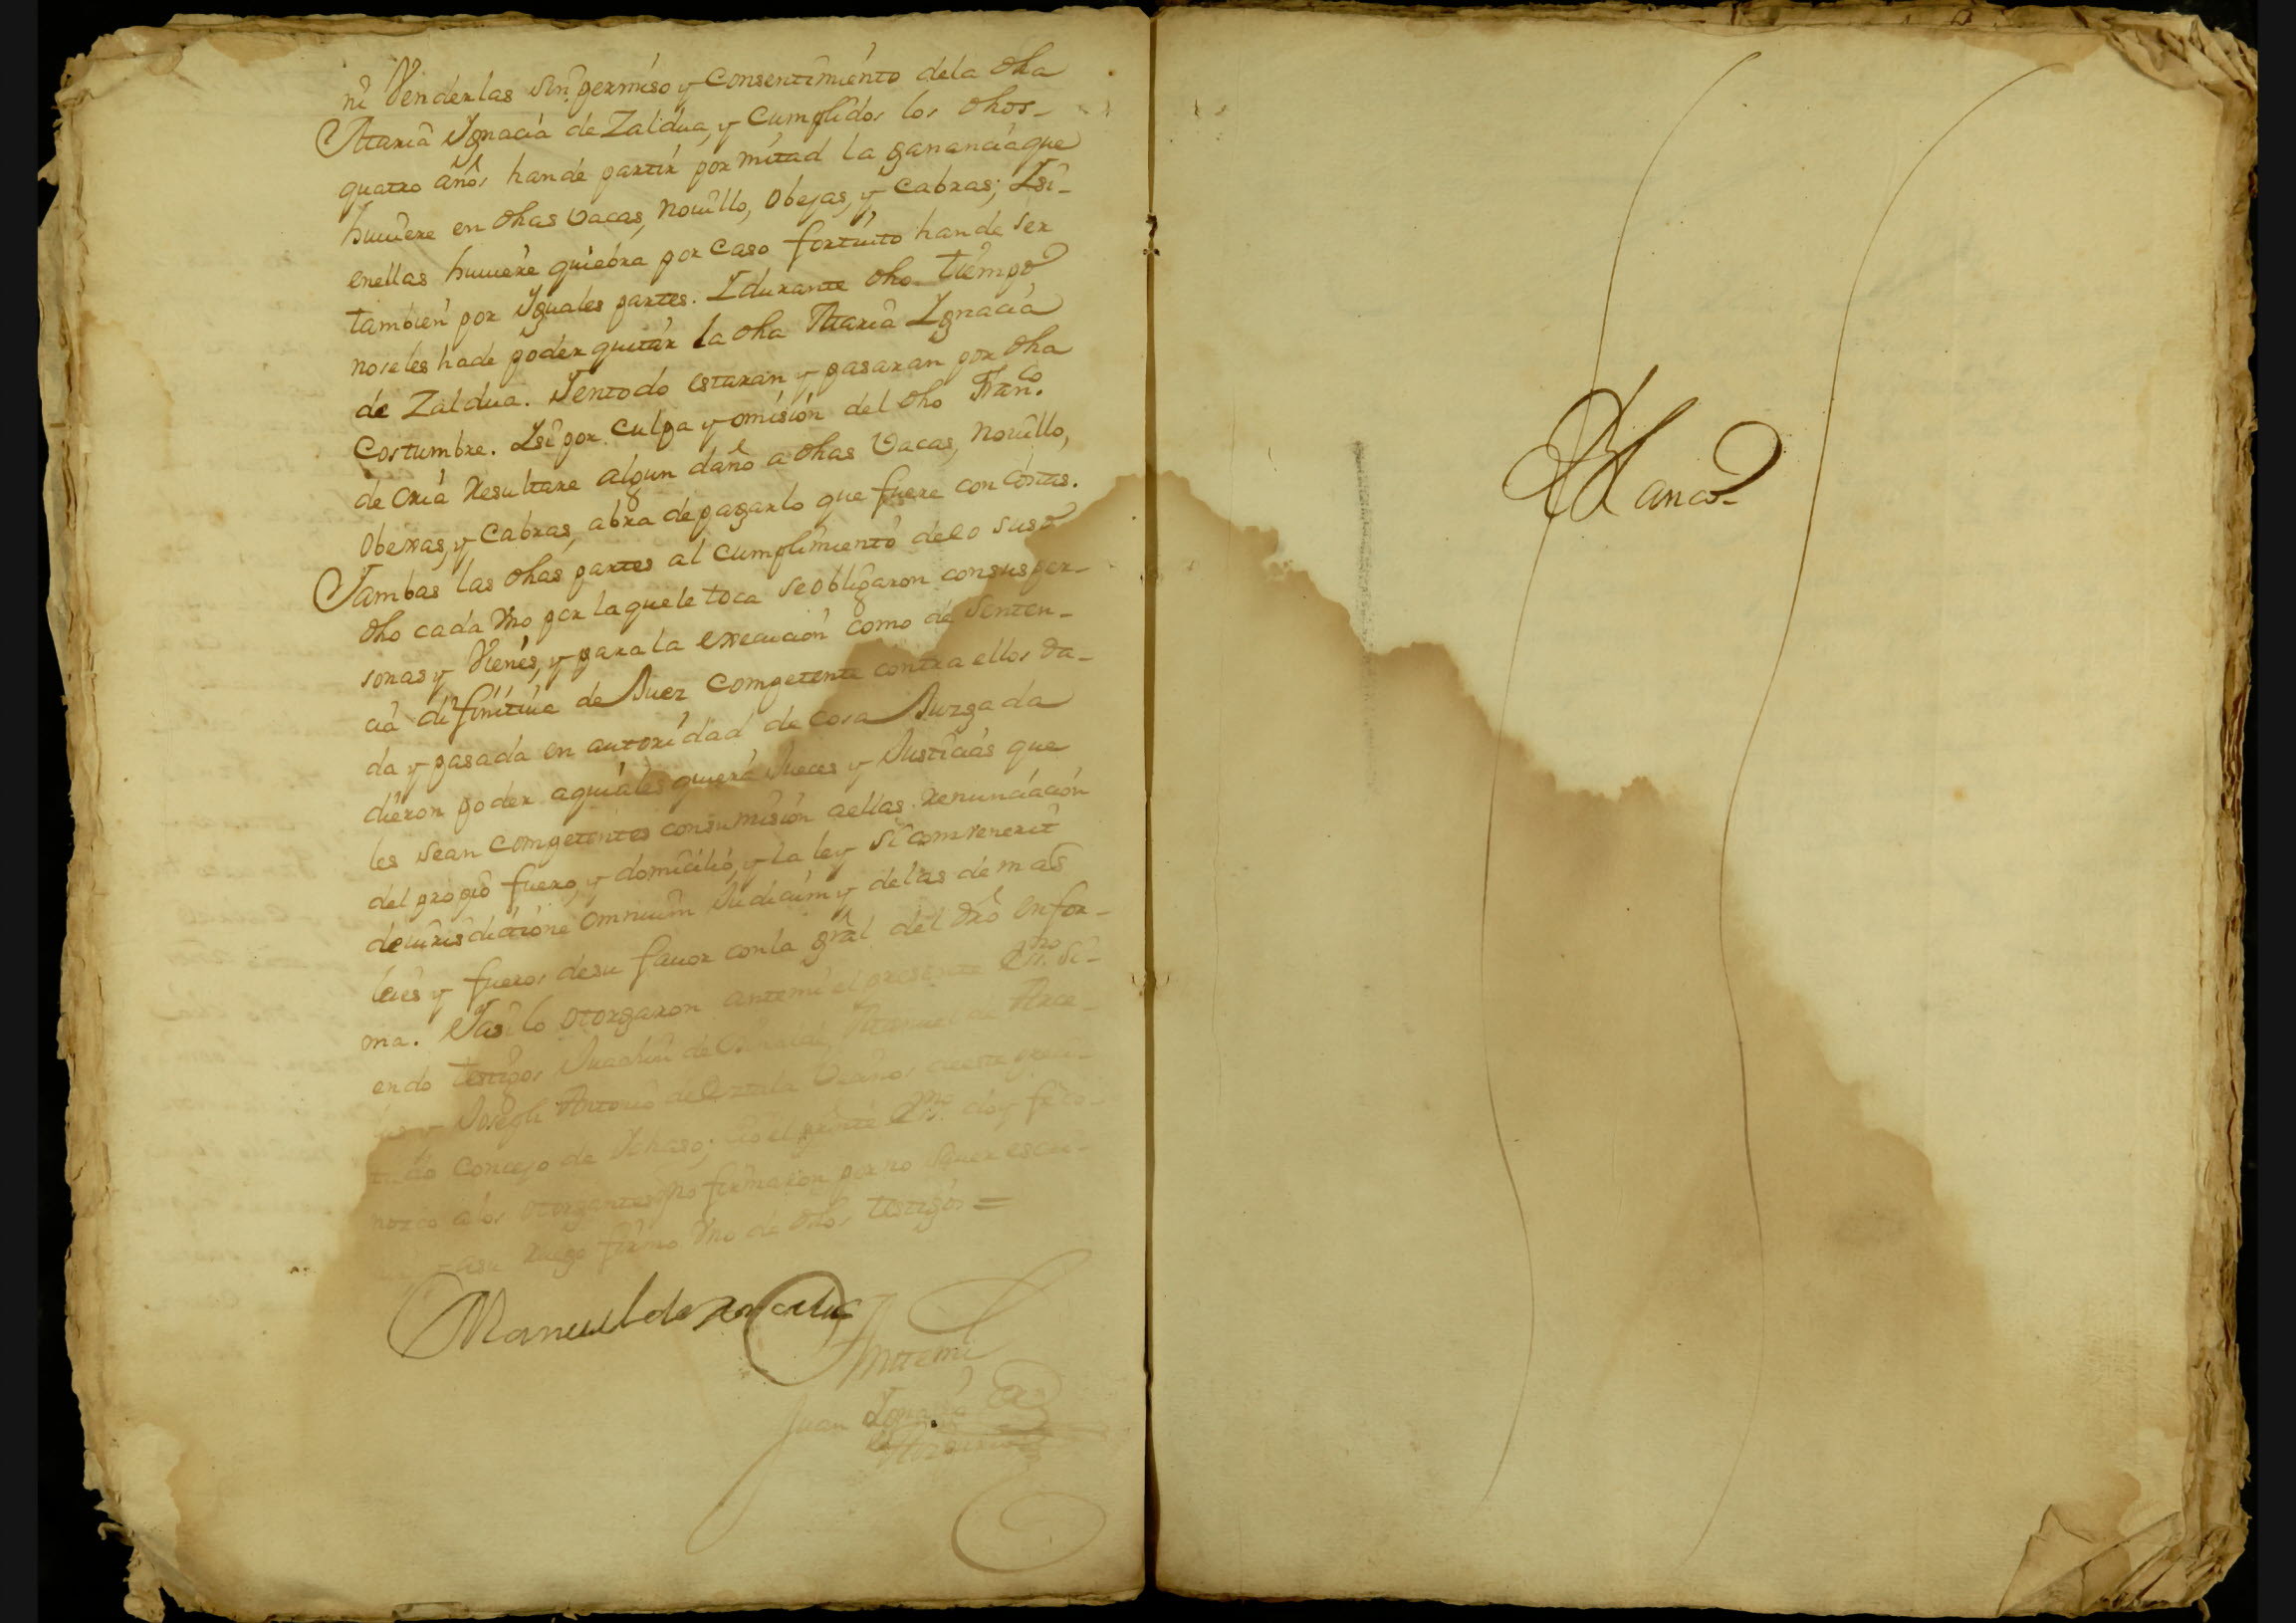 ni Venderlas sin permiso y consentimiento dela dha
Maria Ygnacia de Zaldua, y cumplidos los dhos
quatro años hande partir por mitad la ganancia que
huuiere en dhas vacas, nouillo, obejas, y cabras; Ysi
enellas huuiere quiebra por caso fortuito hande ser
tambien por Yguales partes. Y durante dho tiempo
noseles hade poder quitar la dha Maria Ygnacia
de Zaldua. Y entodo estaran y pasaran por dha
costumbre. Ysi por culpa y omision del dho Fran.co
de cria resultare algun daño a dhas Vacas, nouillo,
obexas, y cabras, abra de pagarlo que fuere con costas.
Y ambas las dhas partes al cumplimiento delo suso
dho cada Vno por laquele toca se obligaron consusper-
sonas y Vienes, y para la execucion como de senten-
cia difinitiua de Juez competente contra ellos da-
da y pasada en autoridad de cosa Juzgada
dieron poder aquales quiera Jueces y Justicias que
les sean competentes consumision aellas renunciacion
del propio fuero, y domicilio, y la ley si convenerit
de iurisdictione omnium Judicum y delas demas
leies y fueros desu fauor conla gral del dro enfor-
ma. Y asi lo otorgaron antemi el presente Ess.no si-
endo testigos Juachin de Manuel de Arce-
Joseph Antonio de Vecinos deeste
concejo de Ychaso; el press.te Ess.no doy fe co-
nozco alos otorgantes no firmaron por no sauer escri-
uir, y asu ruego firmo Vno de dhos testigos =
Manuel de
Antemi
Juan Ygnacio
Blanco